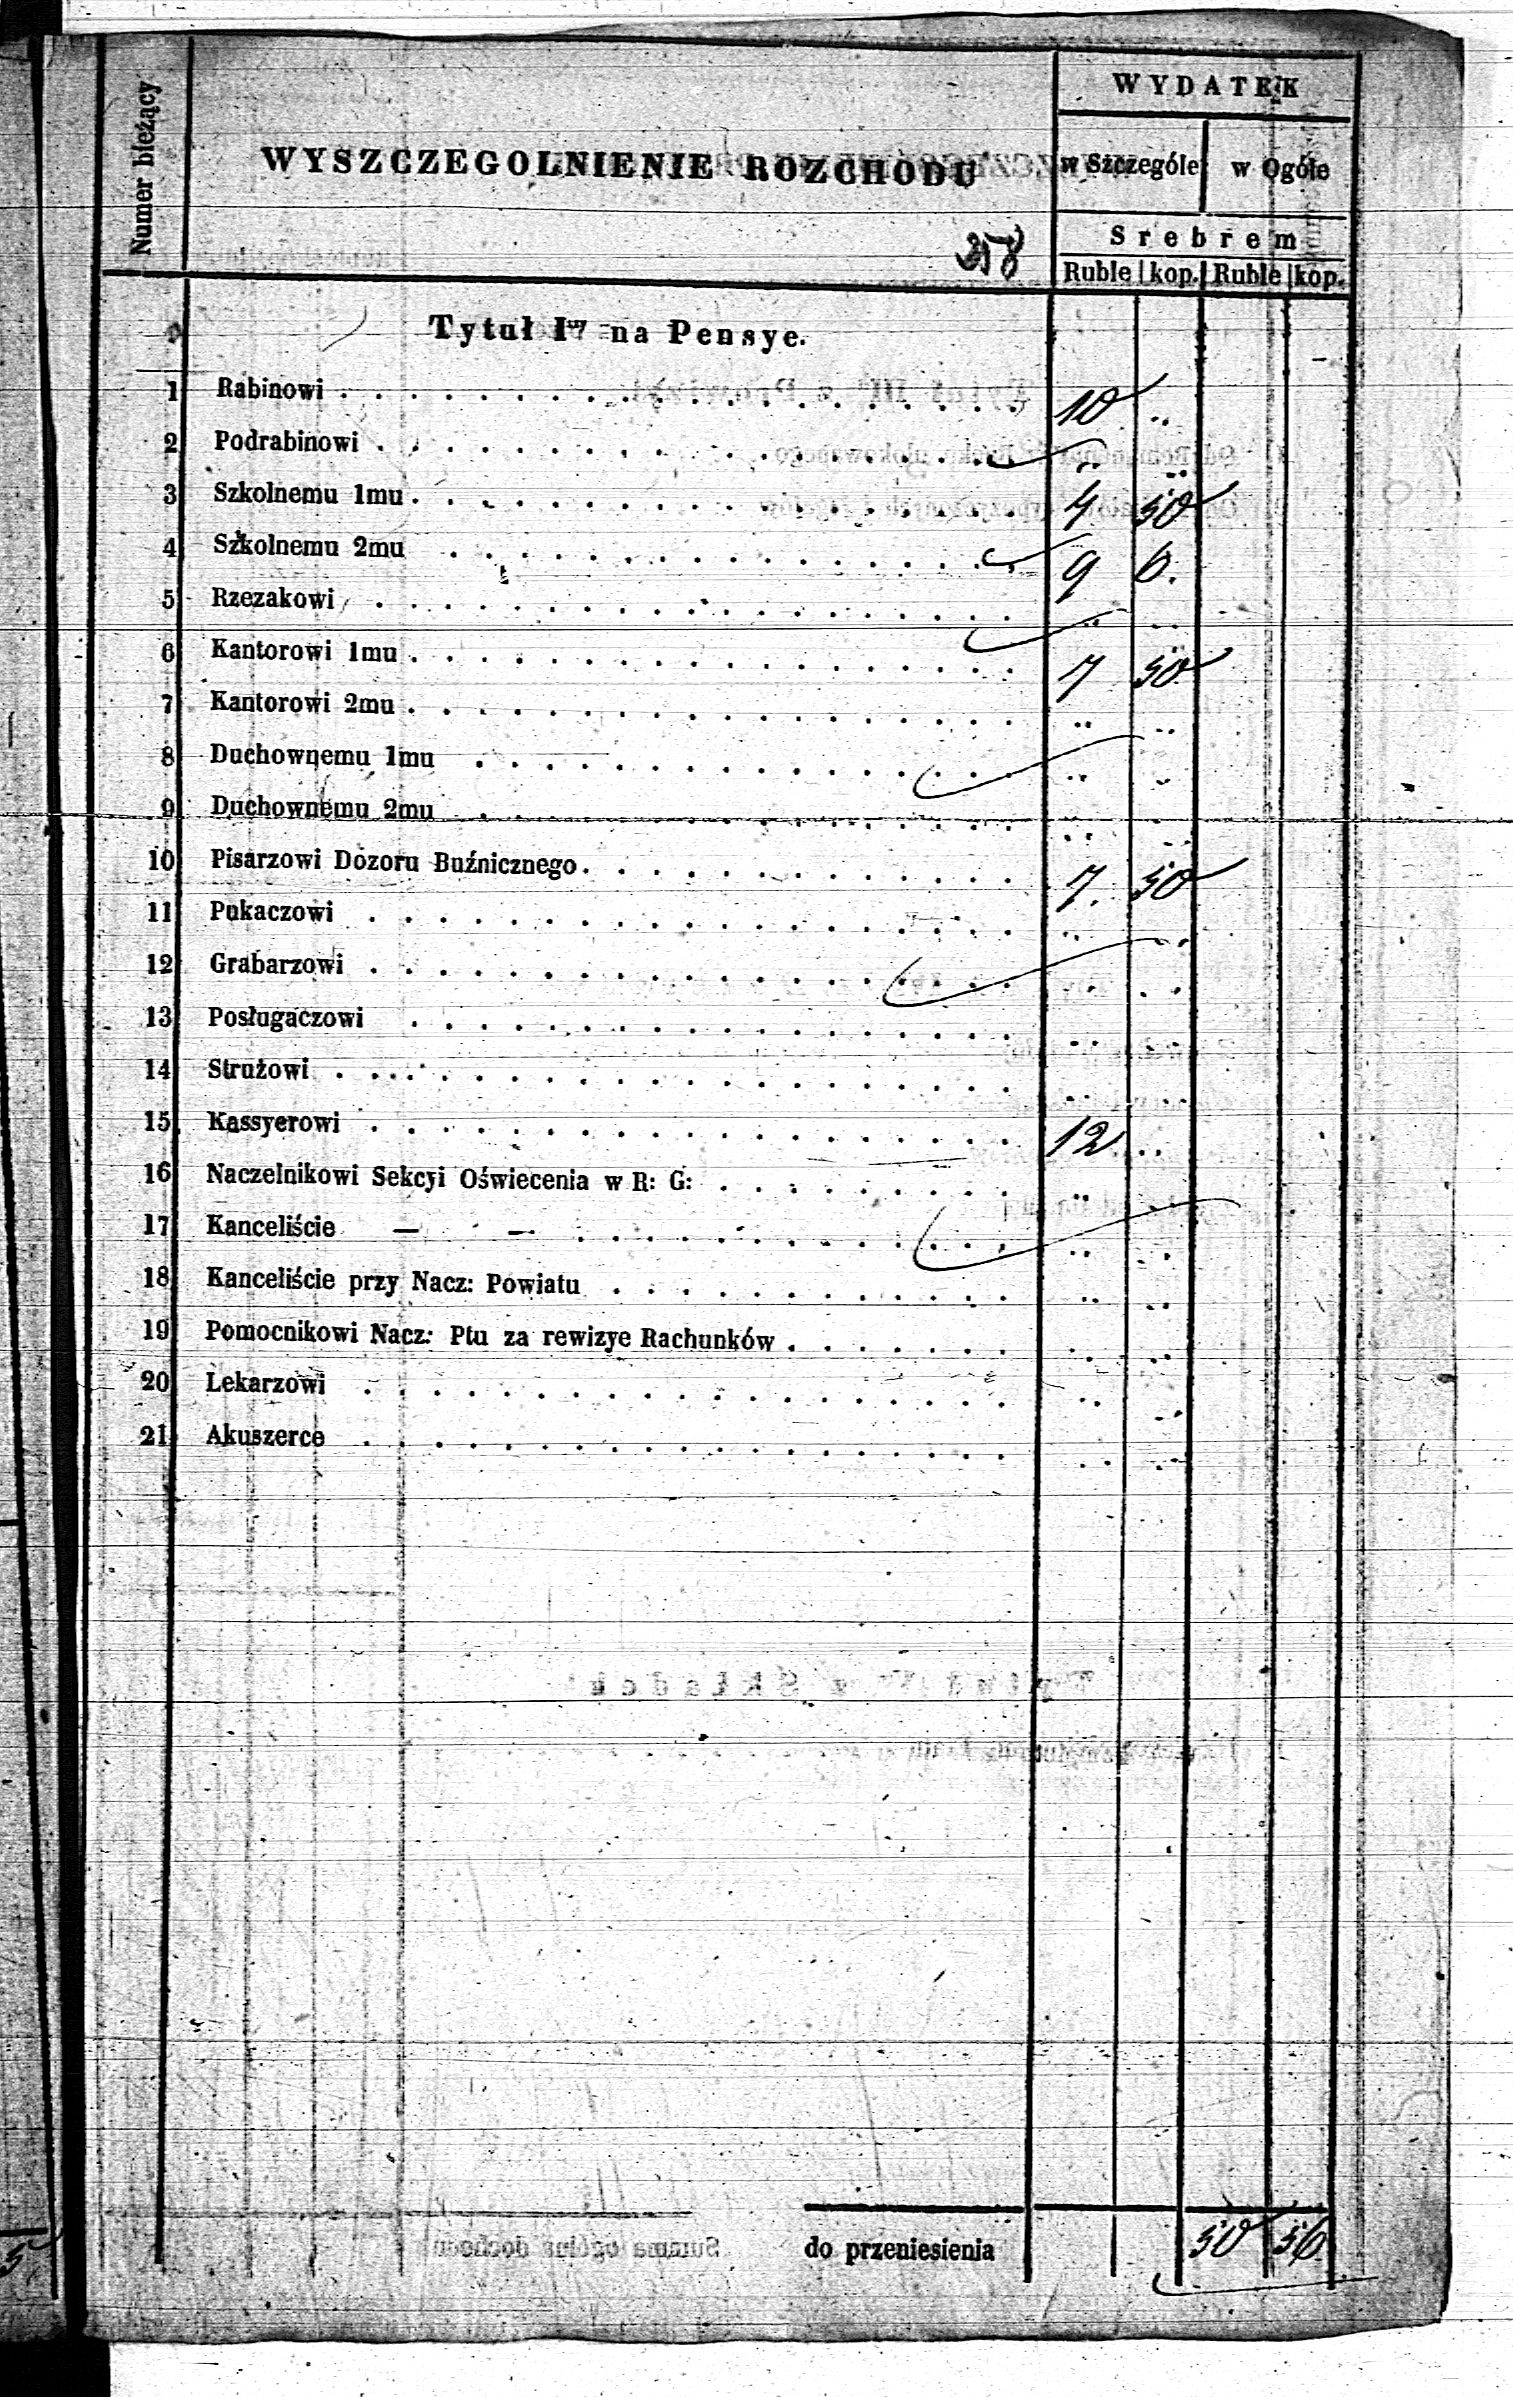 Numer bieżący
WYSZCZEGOLNIENIE ROZCHODU
WYDATEK
w Szczególe w Ogóle
Srebrem
Ruble kop. Ruble kop.
358
Tytuł Iwy na Pensye.
1 Rabinowi . . . 10 ..
2 Podrabinowi . . . .. ..
3 Szkolnemu 1mu . . . 4 50
4 Szkolnemu 2mu . . . 9 6.
5 Rzezakowi . . . .. ..
6 Kantorowi 1mu . . . 7 50
7 Kantorowi 2mu . . . .. ..
8 Duchownemu 1mu . . . .. ..
9 Duchownemu 2mu . . . .. ..
10 Pisarzowi Dozoru Buźnicznego . . . 7. 50
11 Pukaczowi . . . .. ..
12 Grabarzowi . . . .. ..
13 Posługaczowi . . . .. ..
14 Strużowi . . . .. ..
15 Kassyerowi . . . 12 ..
16 Naczelnikowi Sekcyi Oświecenia w R: G: . . . ..
17 Kanceliście — — . . . .. ..
18 Kanceliście przy Nacz: Powiatu . . . .. ..
19 Pomocnikowi Nacz: Ptu za rewizye Rachunków . . . .. ..
20 Lekarzowi . . . .. ..
21 Akuszerce . . . .. ..
do przeniesienia 50 56